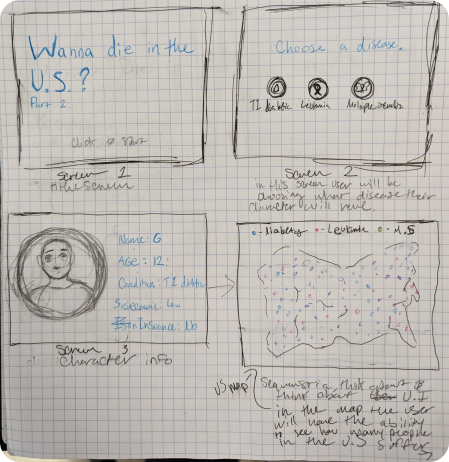 Wanna die in the
U.S.?
Part 2
Click to start
Screen 1
title screen
Choose a disease.
T1 diabetic Leukemia Multiple
Screen 2
in this screen user will be
choosing what disease their
character will have.
Name: G
Age: 12
Condition: T1 diabetic
Insurance: No
Screen 3
character info
- Diabetes - Leukemia - M.S
US map
think about
think about U.I
in the map the user
will have the ability
to see how many people
in the U.S suffer